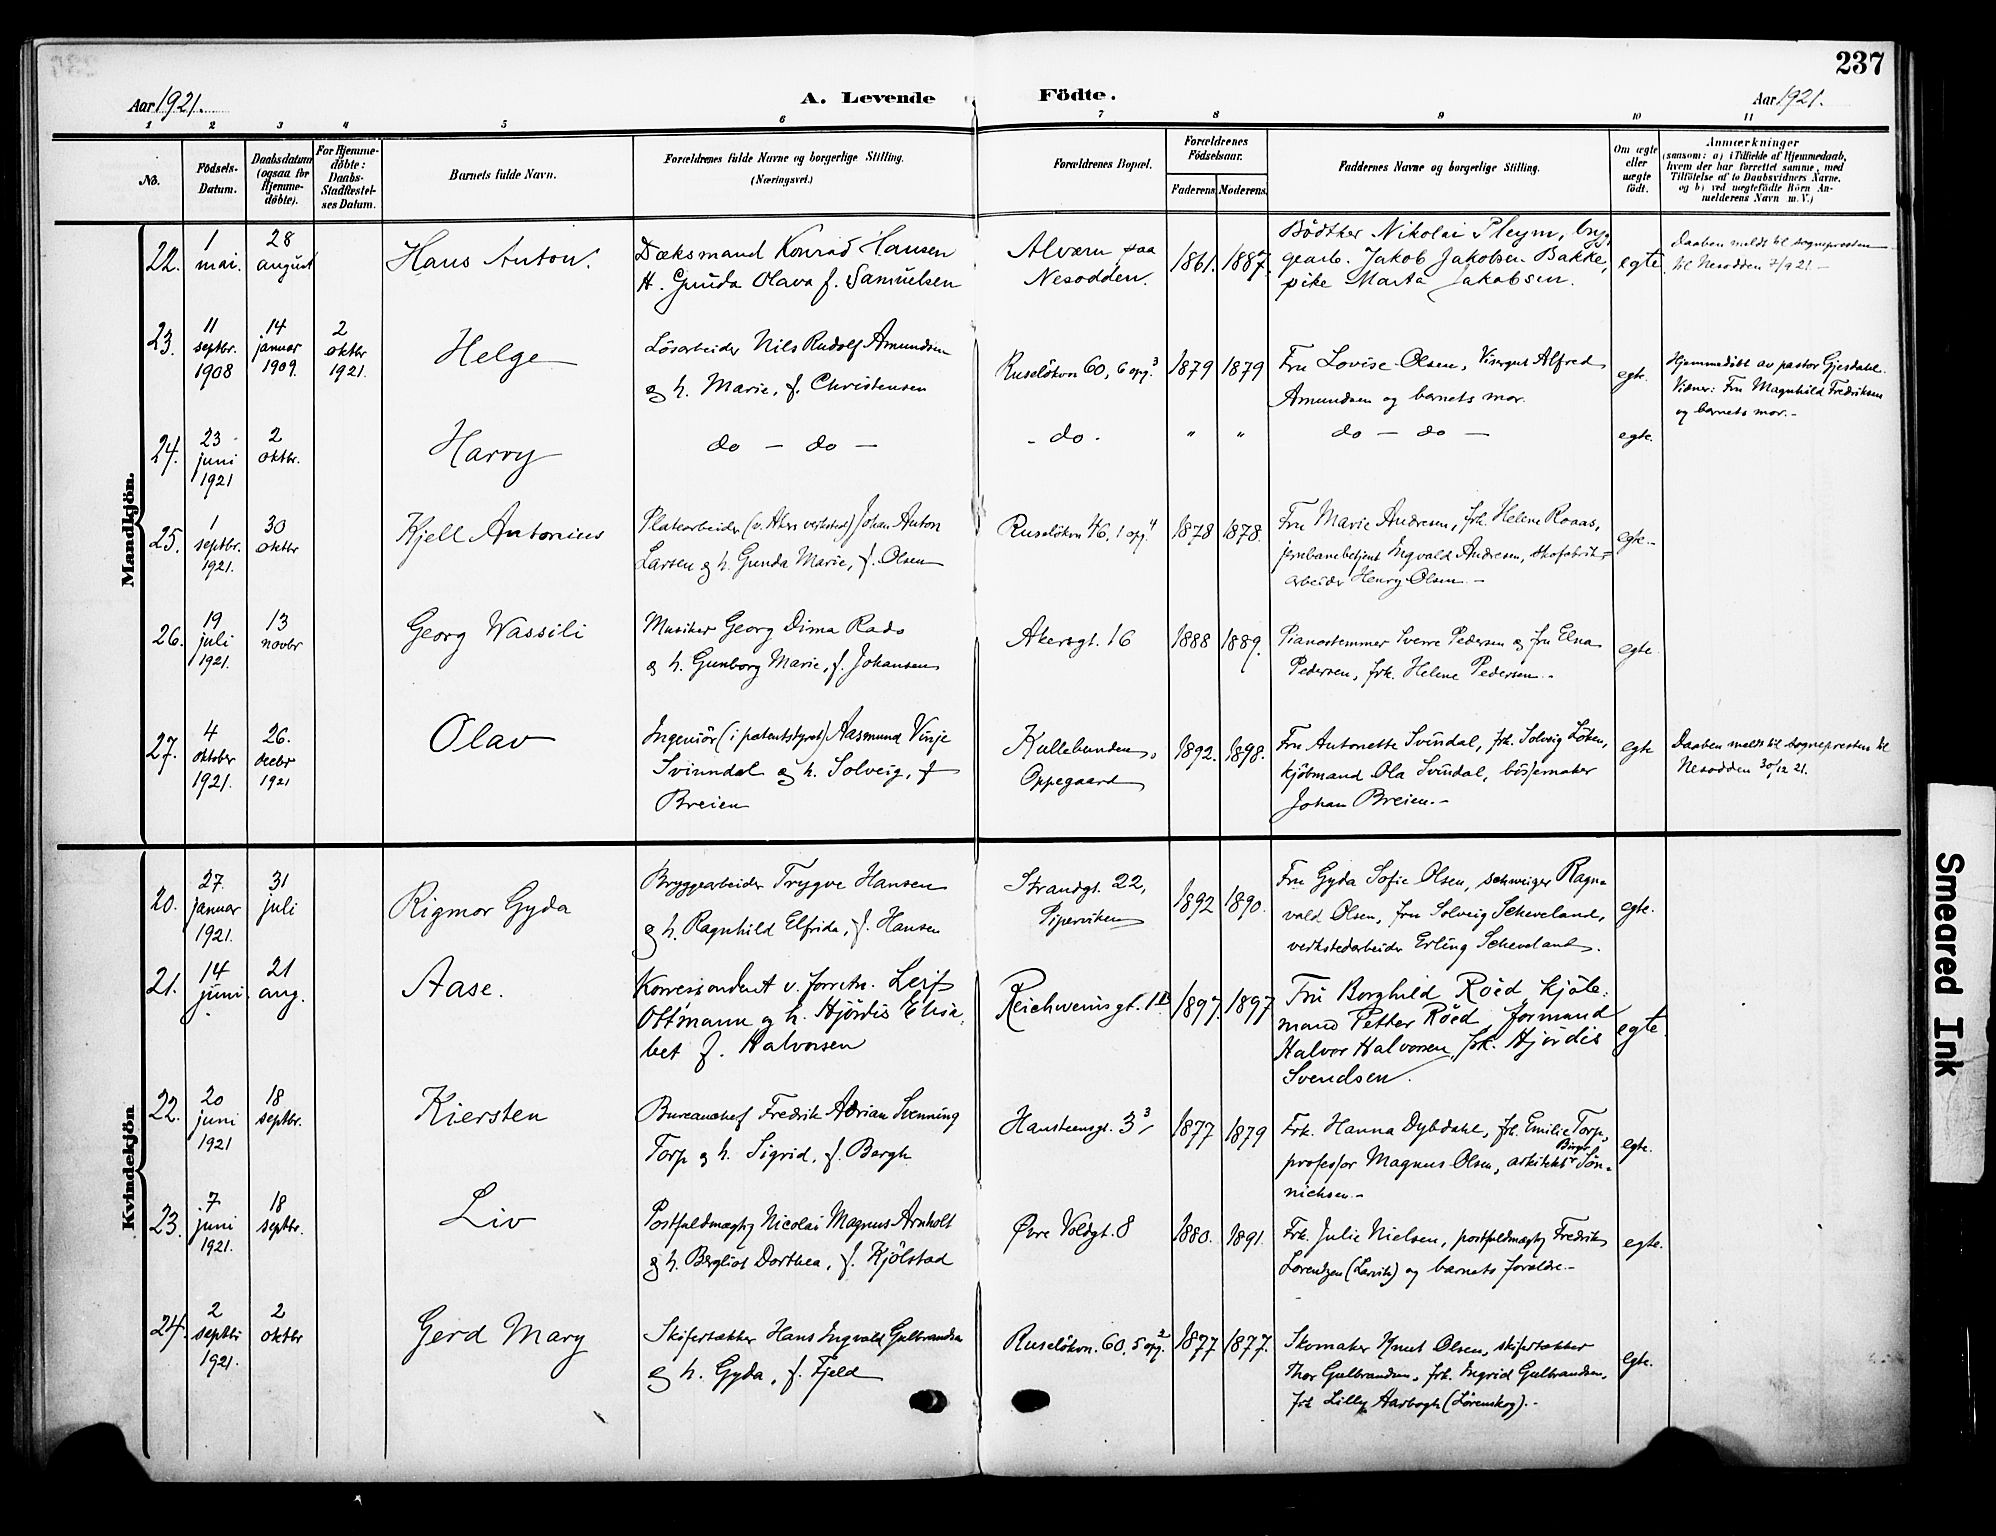 237
Aar 1921.
A. Levende Födte.
Aar 1921.
1 2 3 4 5 6 7 8 9 10 11
No.
Födsels-
Datum.
Daabsdatum
(ogsaa for
Hjemme-
döbte).
For Hjemme-
döbte:
Daabs-
Stadfestel-
ses Datum.
Barnets fulde Navn.
Forældrenes fulde Navne og borgerlige Stilling.
(Næringsvei.)
Forældrenes Bopæl.
Forældrenes
Födselsaar.
Faderens. Moderens.
Faddernes Navne og borgerlige Stilling.
Om ægte
eller
uægte
födt.
Anmærkninger
(saasom: a) i Tilfælde af Hjemmedaab,
hvem der har forrettet samme, med
Tilföielse af to Daabsvidners Navne,
og b) ved uægtefödte Börn An-
melderens Navn m. V.)
Mandkjön.
22.
1
mai.
28
august
Hans Anton.
Dæksmand Konrad Hansen
H. Gunda Olava f. Samuelsen
Alværn paa
Nesodden.
1861. 1887.
Bödtker Nikolai Pleym, byg.
gearb. Jakob Jakobsen Bakke,
pike Marta Jakobsen.
egte
Daaben meldt til sognepresten
til Nesodden 7/9 21.—
23.
11
septbr.
1908
14
januar
1909.
2
oktbr
1921.
Helge
Lösarbeider Nils Rudolf Amundsen
og h. Marie, f. Christensen
Ruselökvn 60, 6 opg. 3
1879 1879
Fru Lovise Olsen, Visergut Alfred
Amundsen og barnets mor.
egte.
Hjemmedöbt av pastor Gjesdahl.
Vidner: Fru Magnhild Fredriksen
og barnets mor.-
24.
23
juni
1921
2
oktbr.
Harry
do — do —
- do.
" "
do — do —
egte.
25.
1
septbr.
1921.
30
oktbr
Kjell Antonius
Platearbeider (v. Akers verksted) Johan Anton
Larsen og h. Gunda Marie, f. Olsen
Ruselökvn 46, 1 opg. 4
1878 1878.
Fru Marie Andresen, frk. Helene Roaas,
jernbanebetjent Ingvald Andresen, skofabrik=
arbeider Henry Olsen.-
egte.-
26.
19
juli
1921.
13
novbr
Georg Wassili
Musiker Georg Dima Rado
og h. Gunborg Marie, f. Johansen
Akersgt. 16
1888 1889.
Pianostemmer Sverre Pedersen og fru Elna
Pedersen, frk. Helene Pedersen.-
egte.
27.
4
oktober
1921.
26.
decbr
1921
Olav
Ingeniör (i patentstyret) Aasmund Vinje
Svinndal og h. Solveig, f
Breien
Kullebunden,
Oppegaard
1892. 1898.
Fru Antonette Svindal, frk. Solveig Löken,
kjöbmand Ola Svindal, bössemaker
Johan Breien.-
egte
Daaben meldt til sognepresten til
Nesodden 30/12 21.
Kvindekjön
20.
27.
januar
1921.
31
juli
Rigmor Gyda
Bryggearbeider Trygve Hansen
og h. Ragnhild Elfrida, f. Hansen
Strandgt. 22,
Pipervikens
1892 1890.
Fru Gyda Sofie Olsen, schweiger Ragn=
vald Olsen, fru Solveig Scheveland,
verkstedarbeider Erling Scheveland.
egte.
21.
14
juni.
21
aug.
Aase.
Korrespondent v. forretn. Leif
Ottmann og h. Hjördis Elisa,
bet f. Halvorsen
Reichweinsgt. 1 II
1897. 1897
Fru Borghild Röed kjöb=
mand Petter Röed formand
Halvor Halvorsen, frk. Hjördis
Svendsen.
egte.
22.
20
juni
1921
18
septbr.
Kiersten
Bureauchef Fredrik Adrian Svenning
Torp og h. Sigrid, f. Bergh
Hansteensgt. 3 3
1877 1879
Frk. Hanna Dybdahl, frk. Emilie Torp,
professor Magnus Olsen, arkitekt Birger Sön=
nichsen.-
egte.
23.
7
juni
1921.
18
septbr.
Liv
Postfuldmægtig Nicolai Magnus Arnholt
og h. Bergliot Dorthea, f. Kjölstad
Øvre Voldgt. 8
1880. 1891.
Frk. Julie Nielsen, postfuldmægtig Fredrik
Lorentzen (Larvik) og barnets forældre.-
egte.
24.
2
septbr
1921.
2
oktbr
Gerd Mary
Skifertækker Hans Ingvald Gulbrandsen
og h. Gyda, f. Fjeld
Ruselökvn. 60, 5 opg. 2
1877 1877.
Skomaker Knut Olsen, skifertækker
Thor Gulbrandsen, frk. Ingrid Gulbrandsen,
frk Lilly Aarbogh (Lörenskog).-
egte.
Smeared Ink